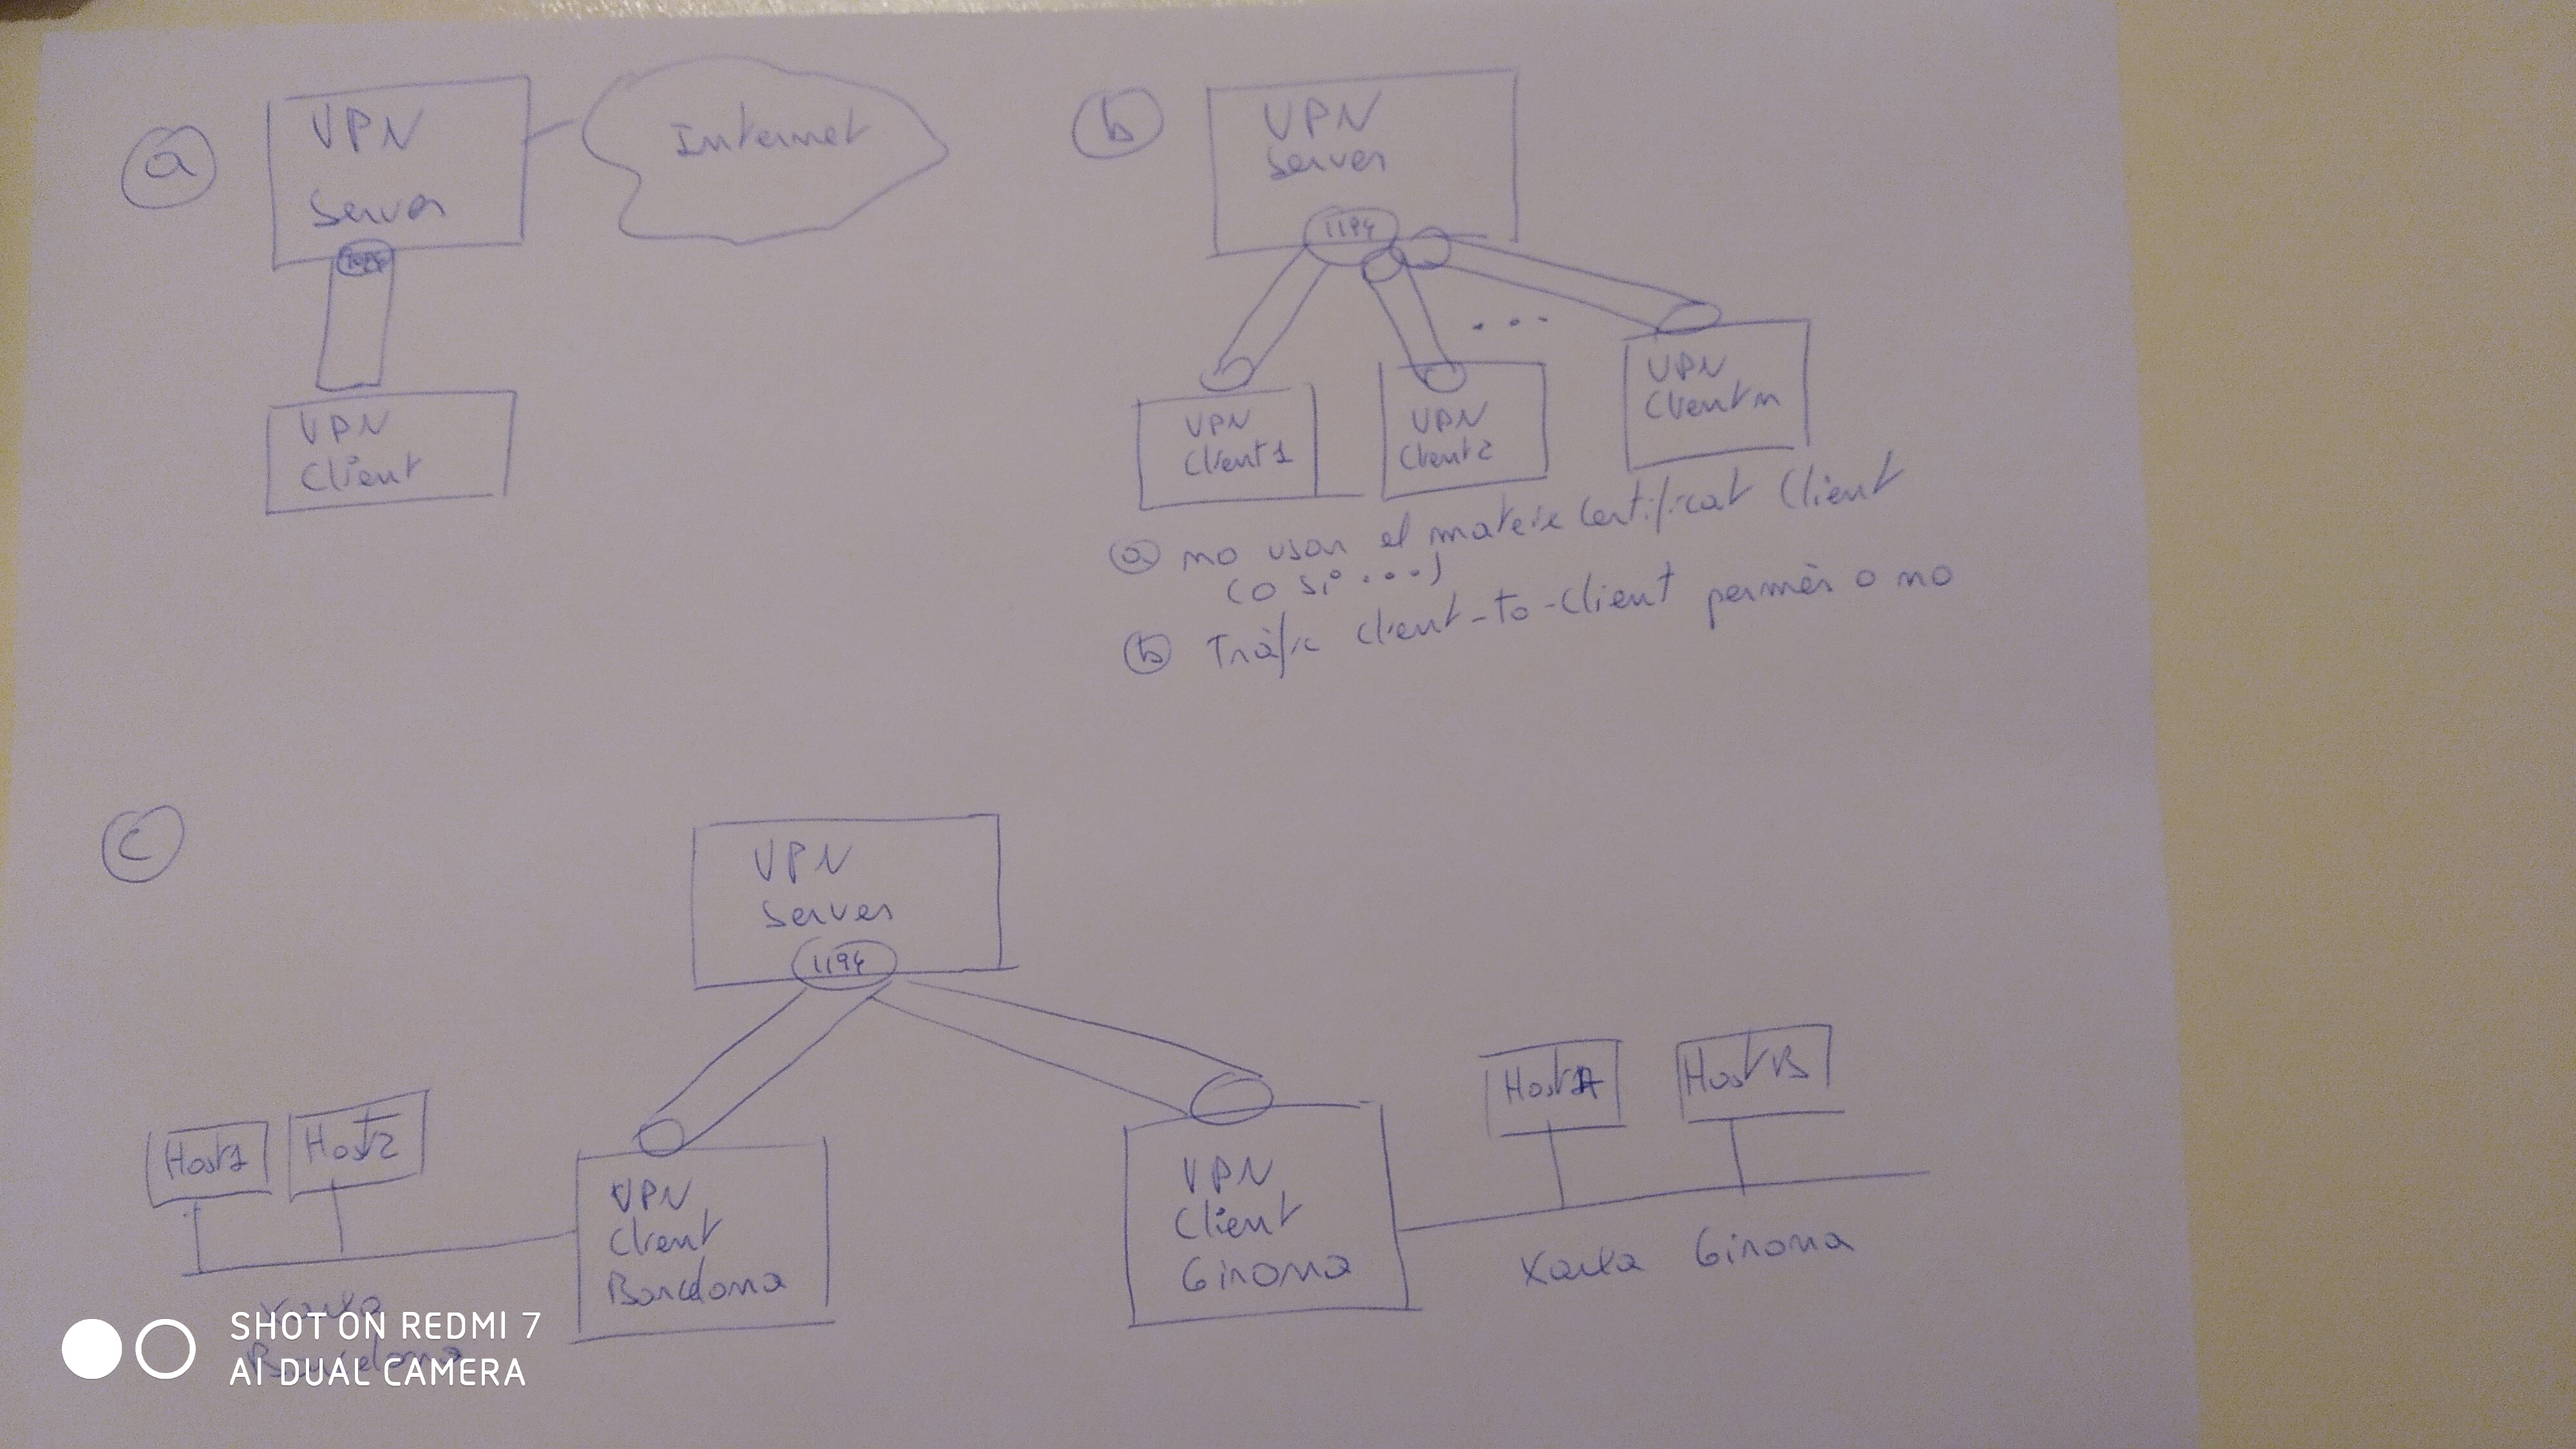 a
VPN
Server
Internet
VPN
Client
b
VPN
Server
1194
...
VPN
Client 1
VPN
Client 2
VPN
Client n
a no usar el mateix certificat client
(o si ...)
b Tràfic client-to-client permès o no
c
VPN
Server
1194
Host 1
Host 2
VPN
Client
Barcelona
Xarxa
Barcelona
VPN
Client
Girona
Host A
Host B
Xarxa Girona
SHOT ON REDMI 7
AI DUAL CAMERA